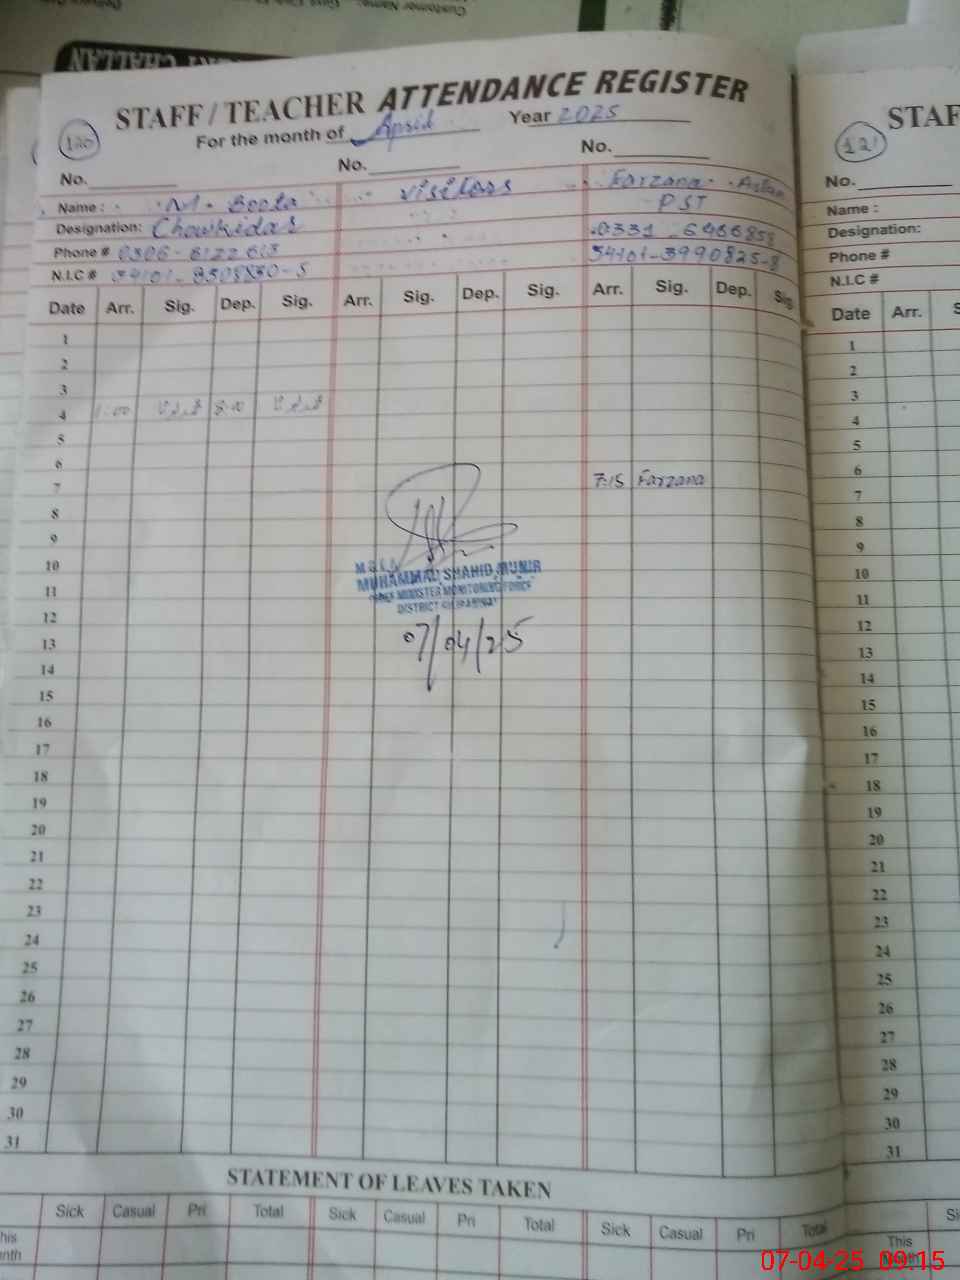 Customer Name:
CHALLAN
STAFF / TEACHER ATTENDANCE REGISTER
120 For the month of April Year 2025
No. No. No.
Name: M. Boota visitors Farzana Aslam
Designation: Chowkidar PST
Phone # 0306-6122613 0331-6466858
N.I.C # 34101-3990825-8
Date Arr. Sig. Dep. Sig. Arr. Sig. Dep. Sig. Arr. Sig. Dep. Sig.
1
2
3
4 8:00
5
6
7 7:15 Farzana
8
9
10
11
12
13
14
15
16
17
18
19
20
21
22
23
24
25
26
27
28
29
30
31
MUHAMMAD SHAHID MUNIR
CHIEF MINISTER MONITORING FORCE
DISTRICT
07/04/25
STATEMENT OF LEAVES TAKEN
Sick Casual Pri Total Sick Casual Pri Total Sick Casual Pri Total
STAF
121
No.
Name :
Designation:
Phone #
N.I.C #
Date Arr. S
1
2
3
4
5
6
7
8
9
10
11
12
13
14
15
16
17
18
19
20
21
22
23
24
25
26
27
28
29
30
31
Si
This
Month
07-04-25 09:15